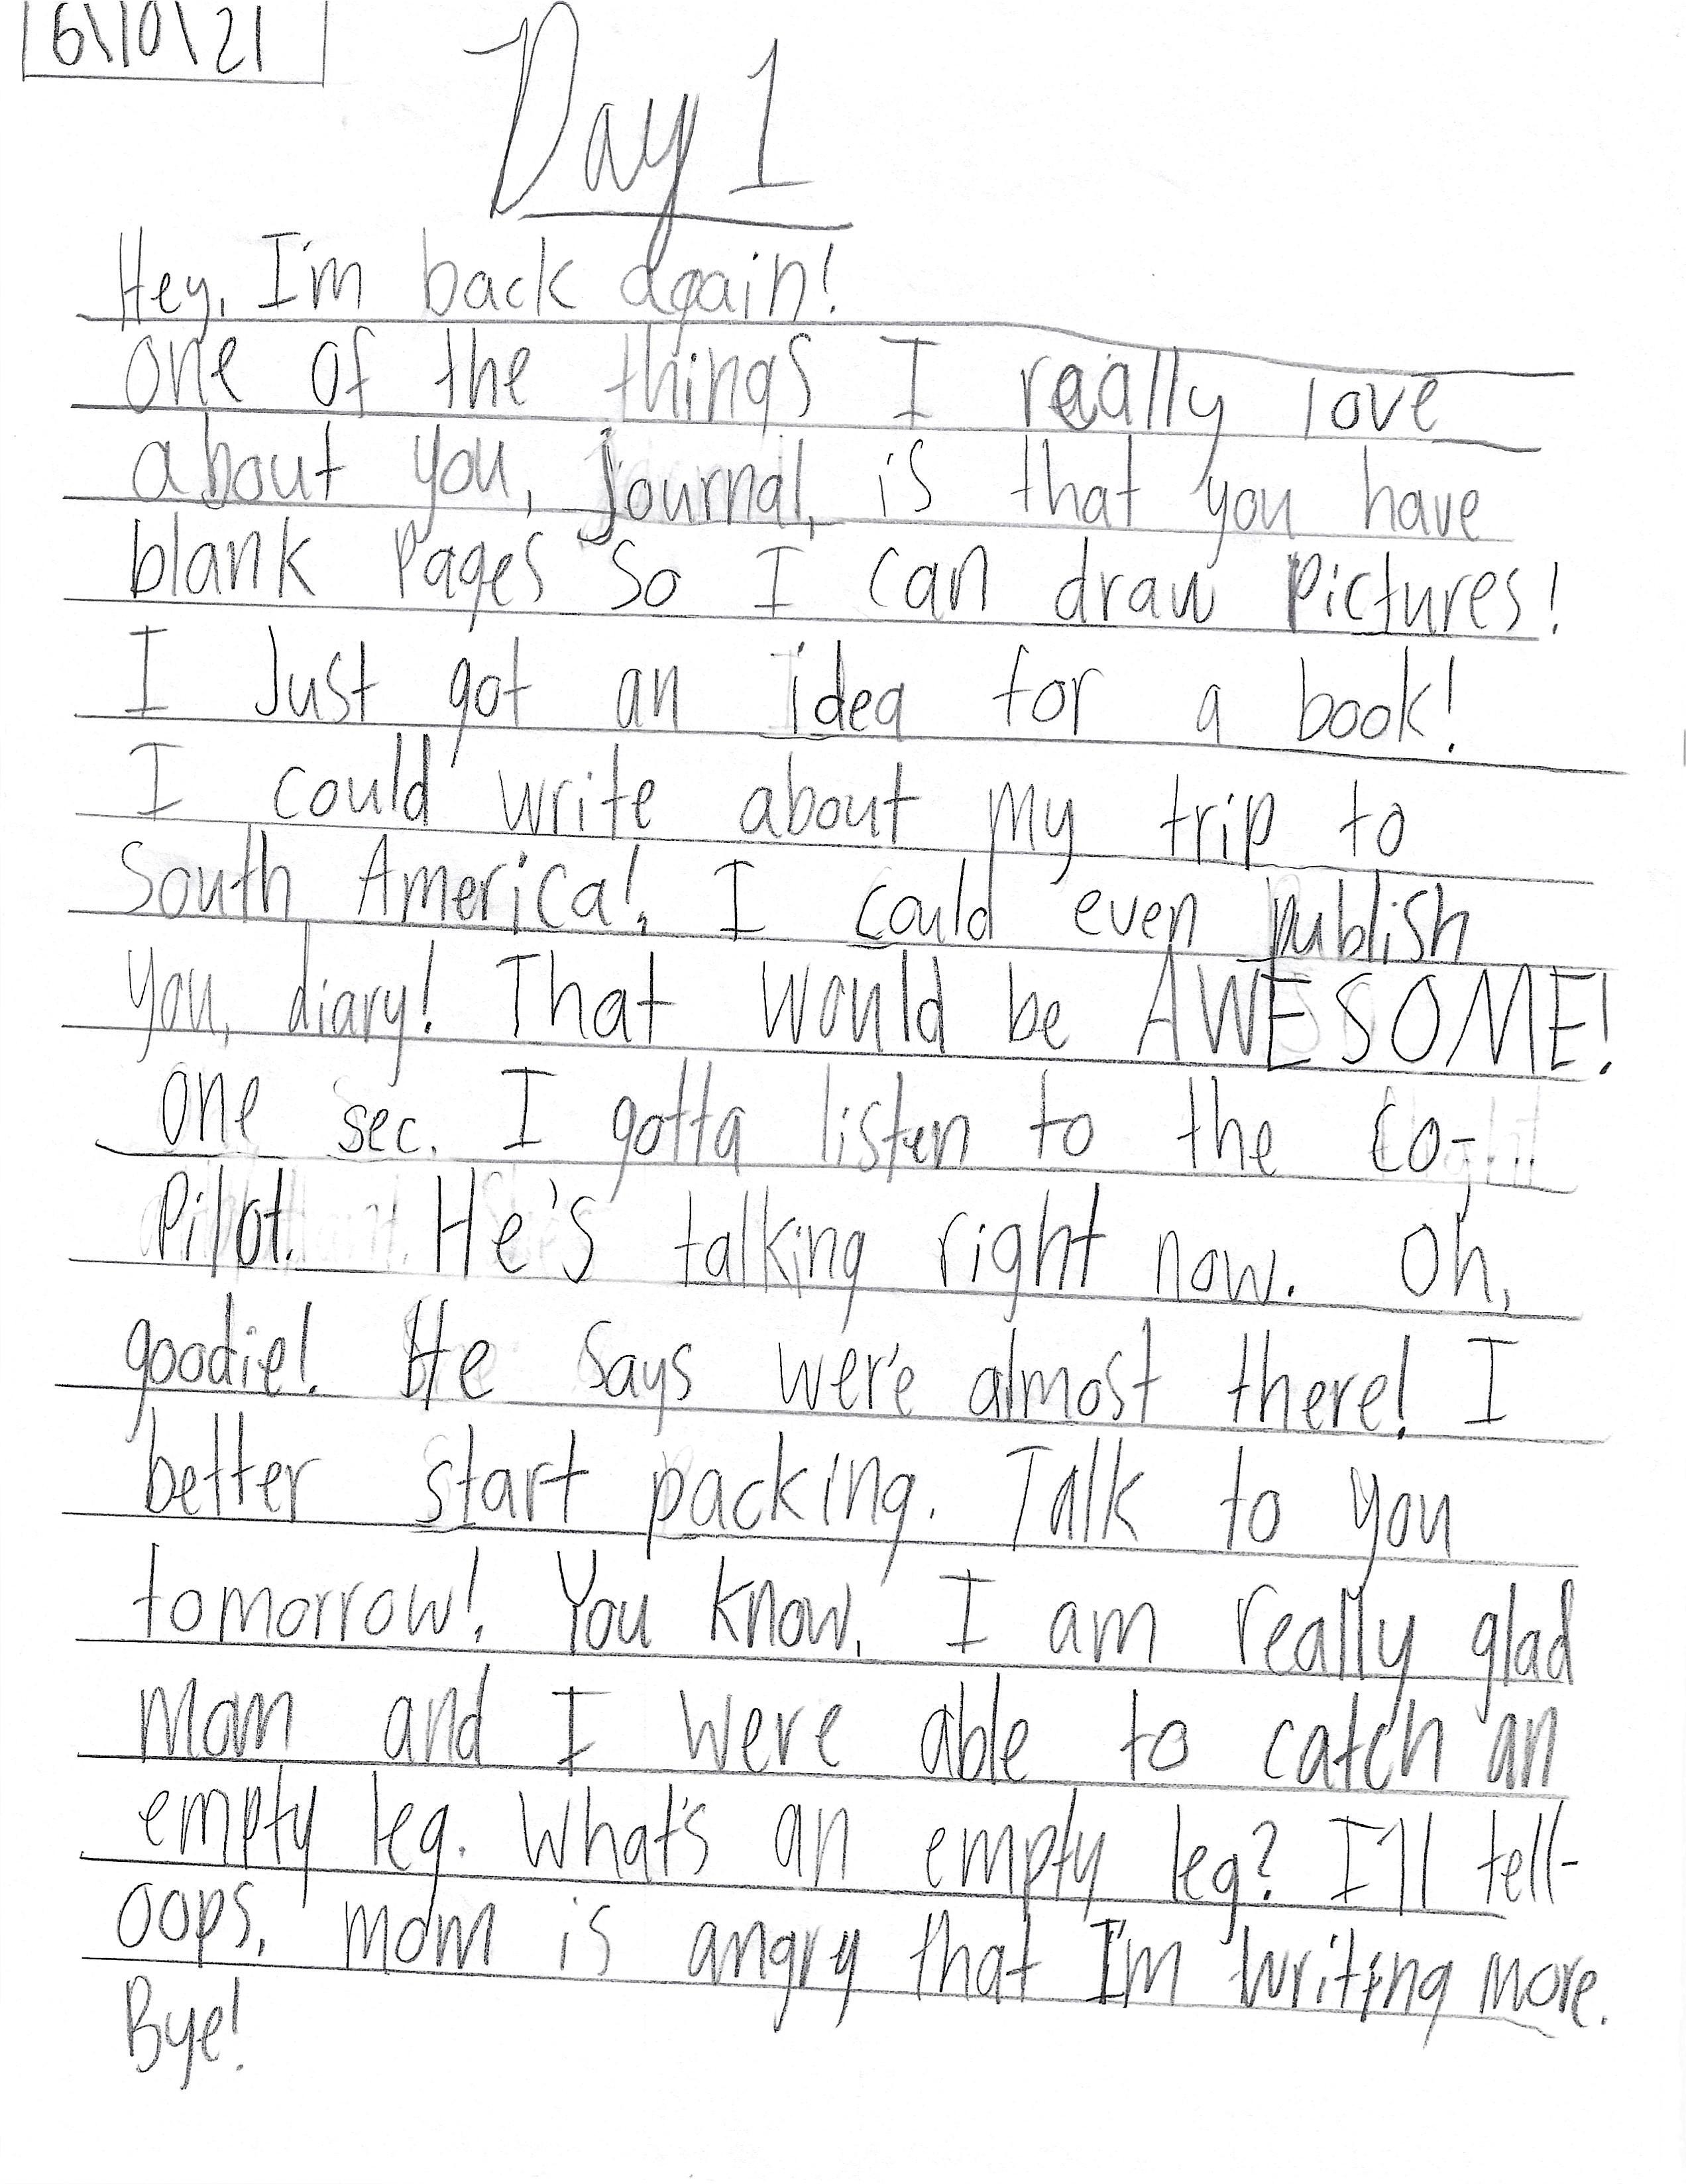 6\10\21
Day 1
Hey, I'm back again!
one of the things I really love
about you, journal, is that you have
blank Pages so I can draw pictures!
I Just got an idea for a book!
I could write about my trip to
South America! I could even publish
you, diary! That would be AWESOME!
one sec. I gotta listen to the co-
Pilot. He's talking right now. Oh,
goodie! He says we're almost there! I
better start packing. Talk to you
tomorrow! You know, I am really glad
Mom and I were able to catch an
empty leg. What's an empty leg? I'll tell-
oops, mom is angry that I'm writing more.
Bye!